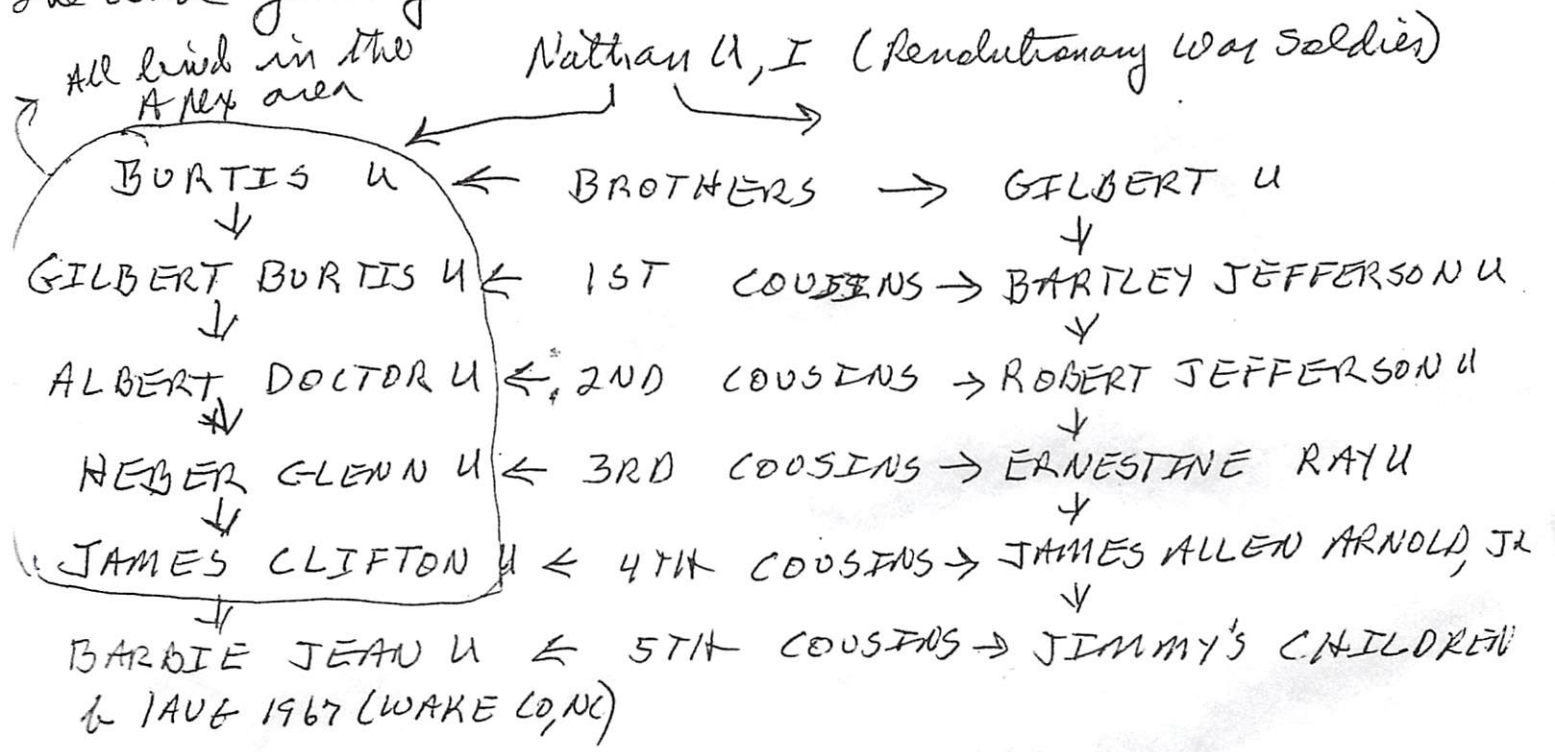 All lived in the
Apex area
Nathan U, I (Revolutionary War Soldier)
BURTIS U ← BROTHERS → GILBERT U
GILBERT BURTIS U ← 1ST COUSINS → BARTLEY JEFFERSON U
ALBERT DOCTOR U ← 2ND COUSINS → ROBERT JEFFERSON U
HEBER GLENN U ← 3RD COUSINS → ERNESTINE RAY U
JAMES CLIFTON U ← 4TH COUSINS → JAMES ALLEN ARNOLD, JR
BARBIE JEAN U ← 5TH COUSINS → JIMMY'S CHILDREN
b 1 AUG 1967 (WAKE CO, NC)